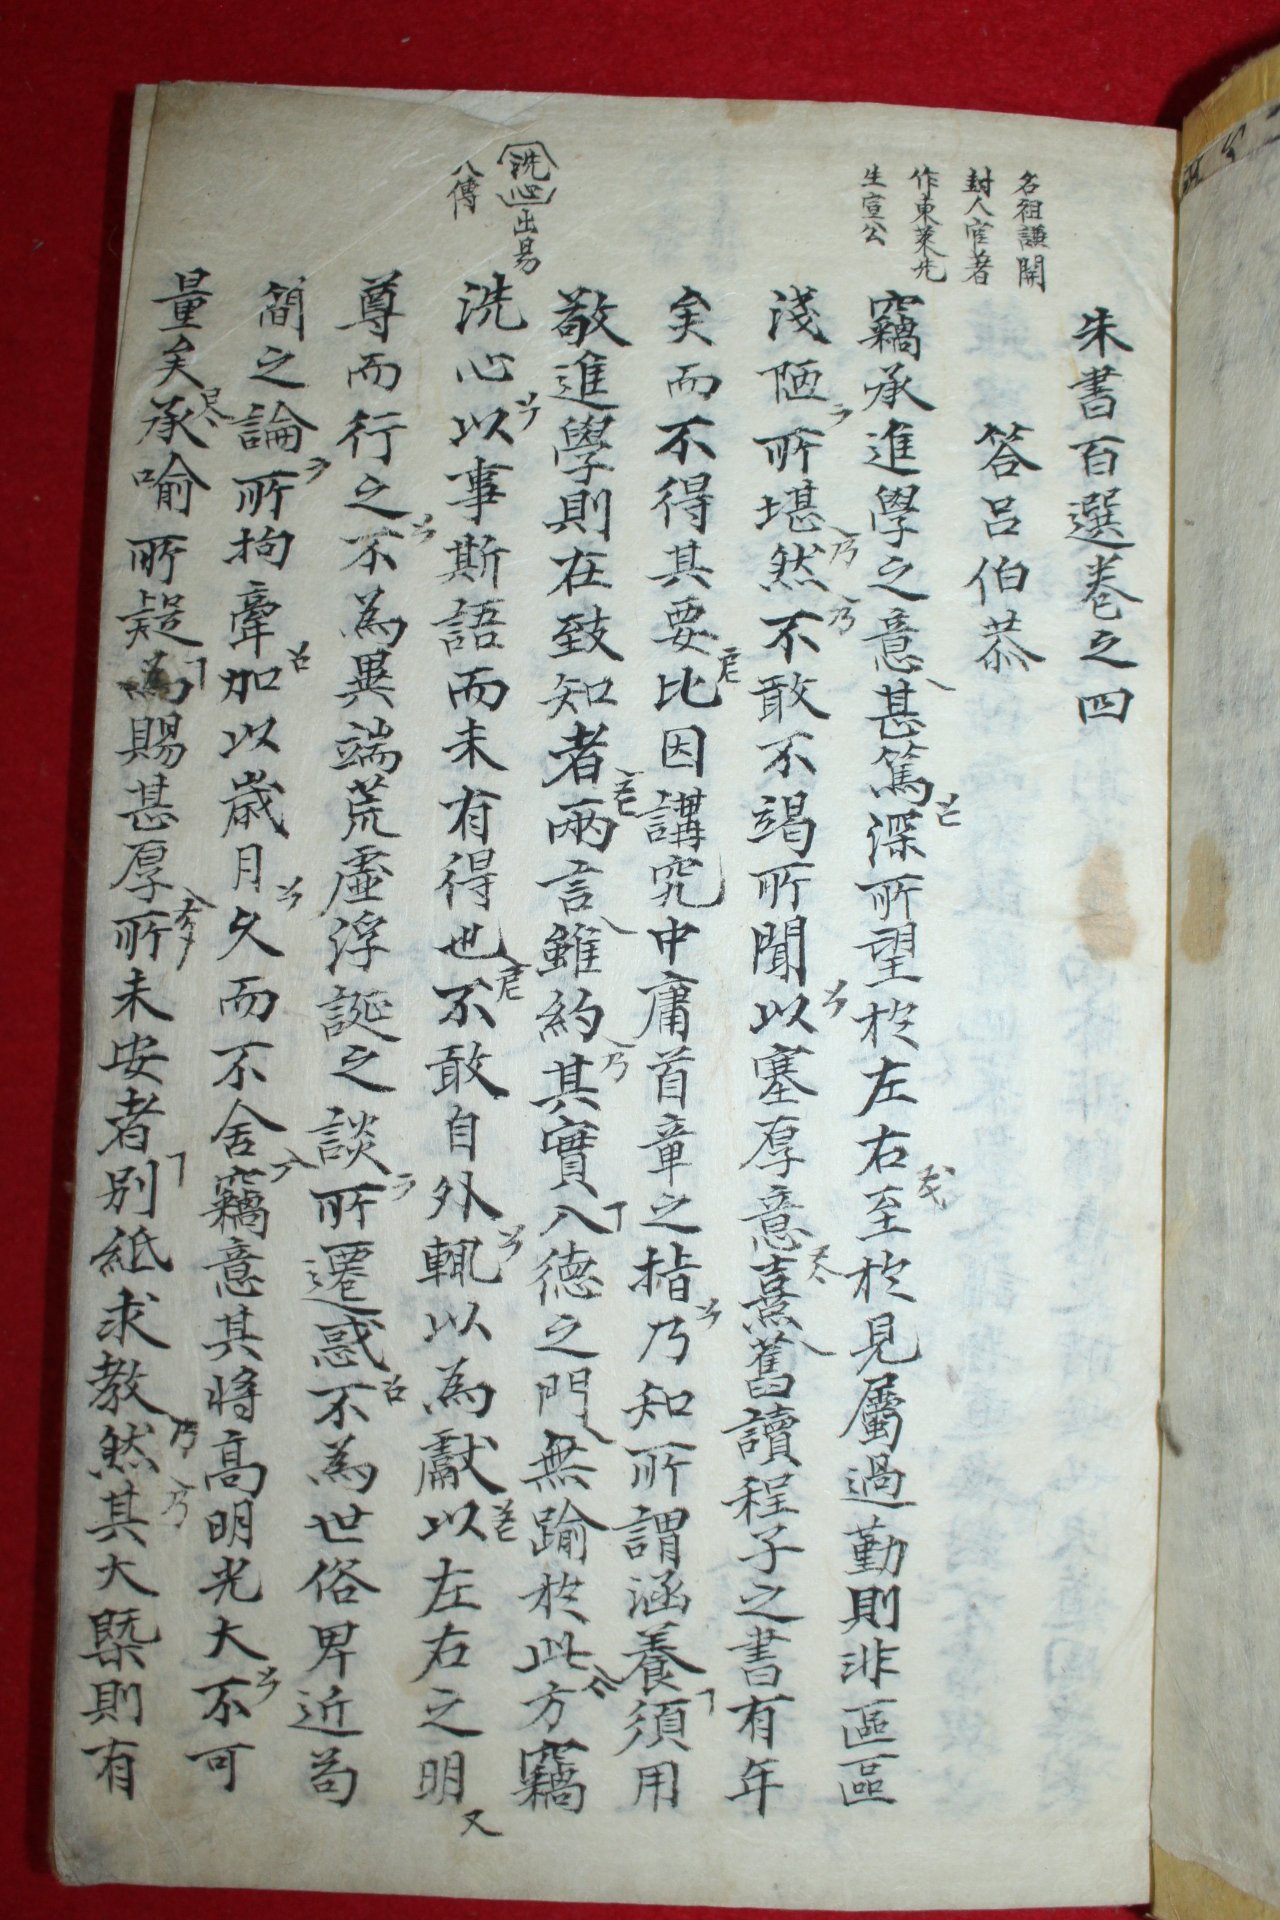 朱書百選卷之四
答呂伯恭
名祖謙開
封人官著
作東萊先
生宣公
竊承進學之意甚篤深所望於左右至於見屬過勤則非區區
淺陋所堪然不敢不竭所聞以塞厚意熹舊讀程子之書有年
矣而不得其要比因講究中庸首章之指乃知所謂涵養須用
敬進學則在致知者兩言雖約其實入德之門無踰於此方竊
洗心出易
八傳
洗心以事斯語而未有得也不敢自外輒以為獻以左右之明
尊而行之不為異端荒虛浮誕之談所遷惑不為世俗卑近苟
簡之論所拘牽加以歲月久而不舍竊意其將高明光大不可
量矣承喻所疑為賜甚厚所未安者別紙求教然其大槩則有
又